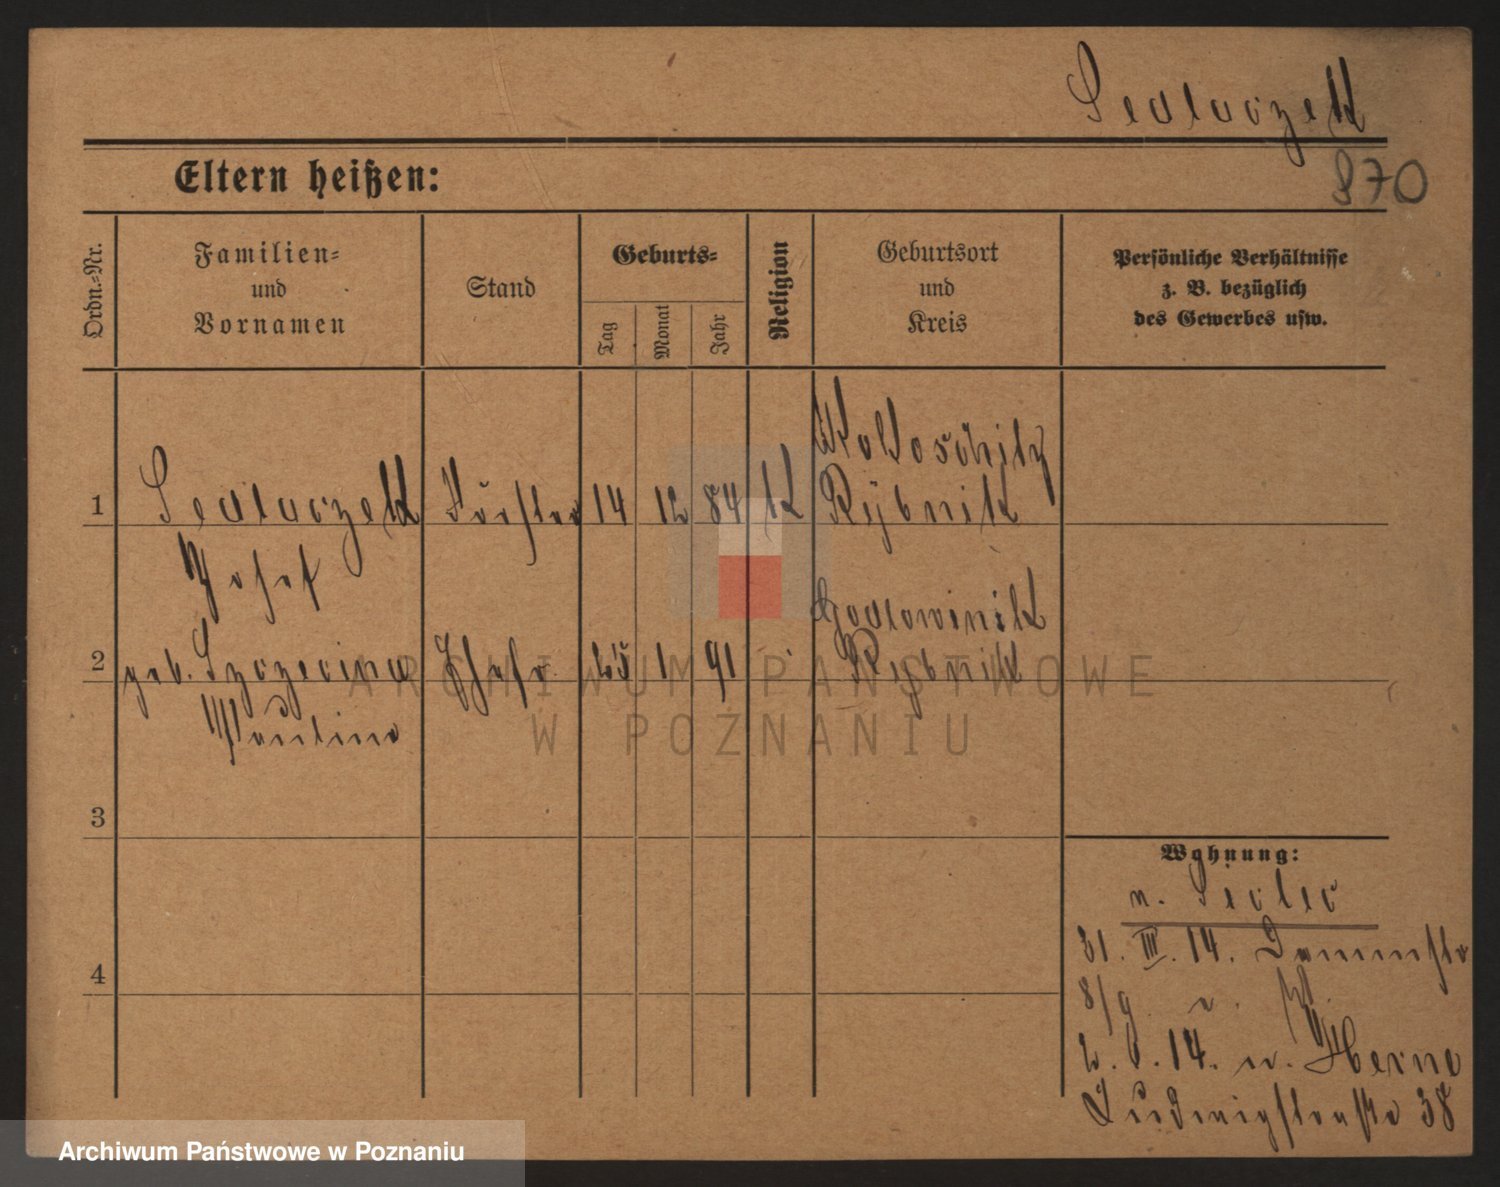 Sedlaczek
870
Eltern heißen:
Ordn.-Nr.
Familien-
und
Vornamen
Stand
Geburts-
Tag
Monat
Jahr
Religion
Geburtsort
und
Kreis
Persönliche Verhältnisse
z. B. bezüglich
des Gewerbes usw.
1
Sedlaczek
Josef
Förster
14
12
84
K
Rybnik
2
geb.
Pauline
Ehefr.
25
1
91
Rybnik
3
4
Wohnung:
n.
31. III. 14. Dammstr
8/9
14. n. Herne
Ludwigstraße 38
ARCHIWUM PAŃSTWOWE
W POZNANIU
Archiwum Państwowe w Poznaniu